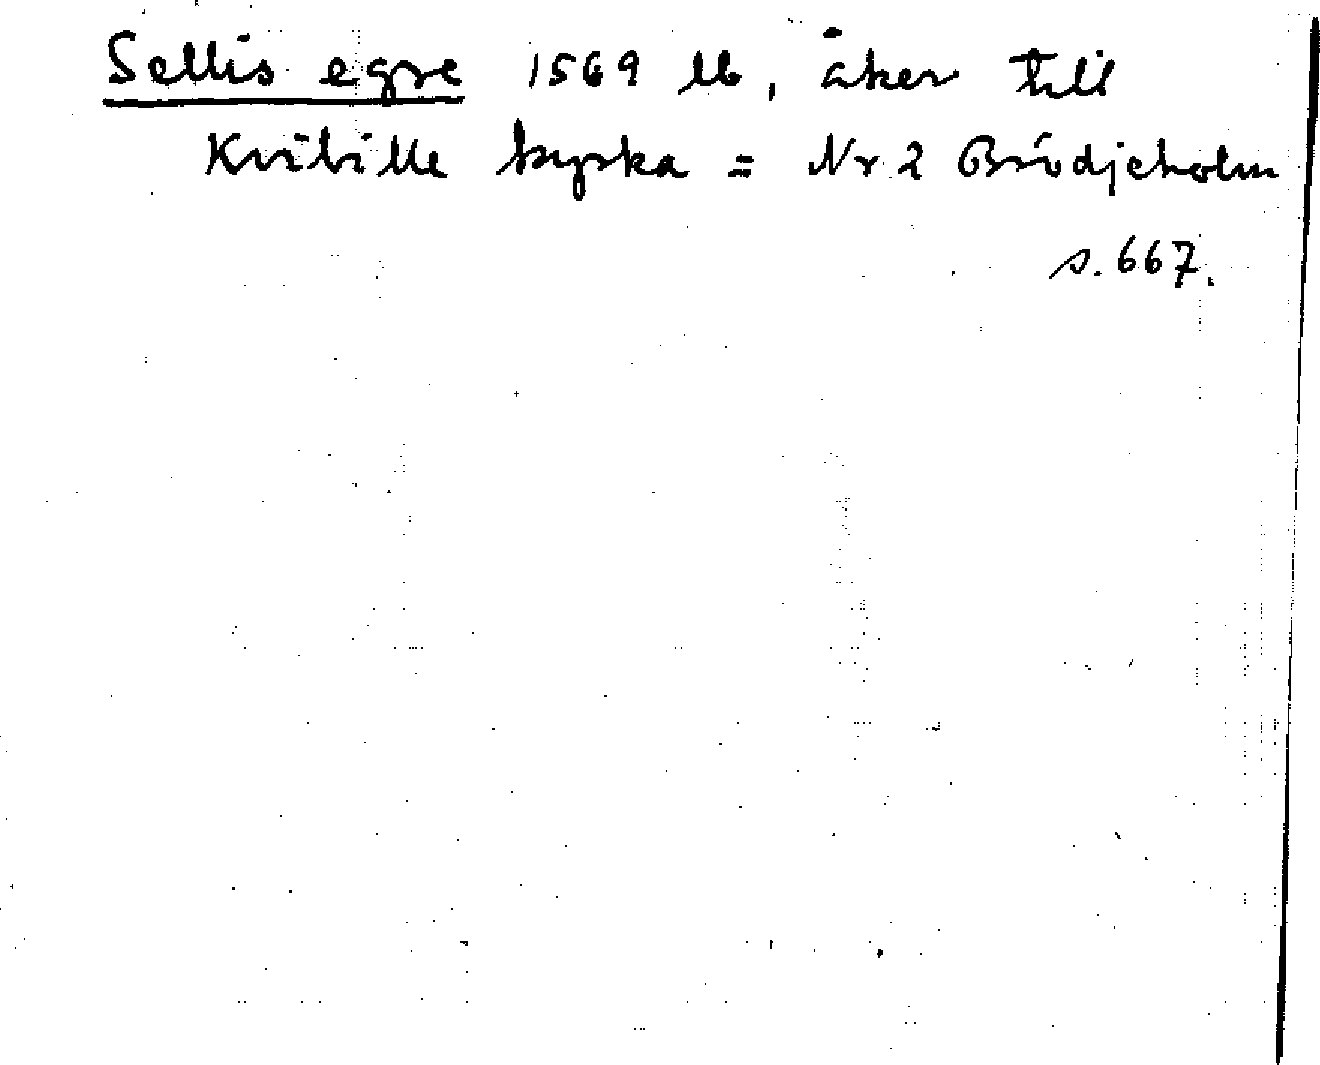 Sellis egre 1569 lb, åker till
Kvibille kyrka = Nr 2 Brödjeholm
s. 667.